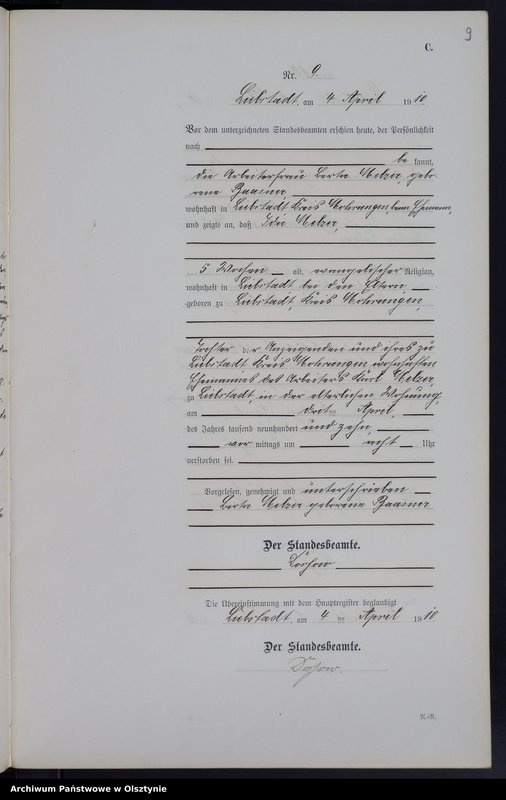 9
C.
Nr. 9.
Liebstadt, am 4 April 1910.
Vor dem unterzeichneten Standesbeamten erschien heute, der Persönlichkeit
nach
be kannt,
die Arbeiterfrau Berta Melzer, gebo-
rene Baasner
wohnhaft in Liebstadt Kreis Mohrungen, beim Ehemann,
und zeigte an, daß Ida Melzer,
5 Wochen alt, evangelischer Religion,
wohnhaft in Liebstadt bei den Eltern
geboren zu Liebstadt, Kreis Mohrungen,
Tochter der Anzeigenden und ihres zu
Liebstadt Kreis Mohrungen wohnhaften
Ehemannes des Arbeiters Karl Melzer,
zu Liebstadt, in der elterlichen Wohnung,
am dritten April,
des Jahres tausend neunhundert und zehn,
vor mittags um acht Uhr
verstorben sei.
Vorgelesen, genehmigt und unterschrieben
Berta Melzer geborene Baasner
Der Standesbeamte.
Die Übereinstimmung mit dem Hauptregister beglaubigt
Liebstadt, am 4 ten April 1910.
Der Standesbeamte.
N.-R.
Archiwum Państwowe w Olsztynie